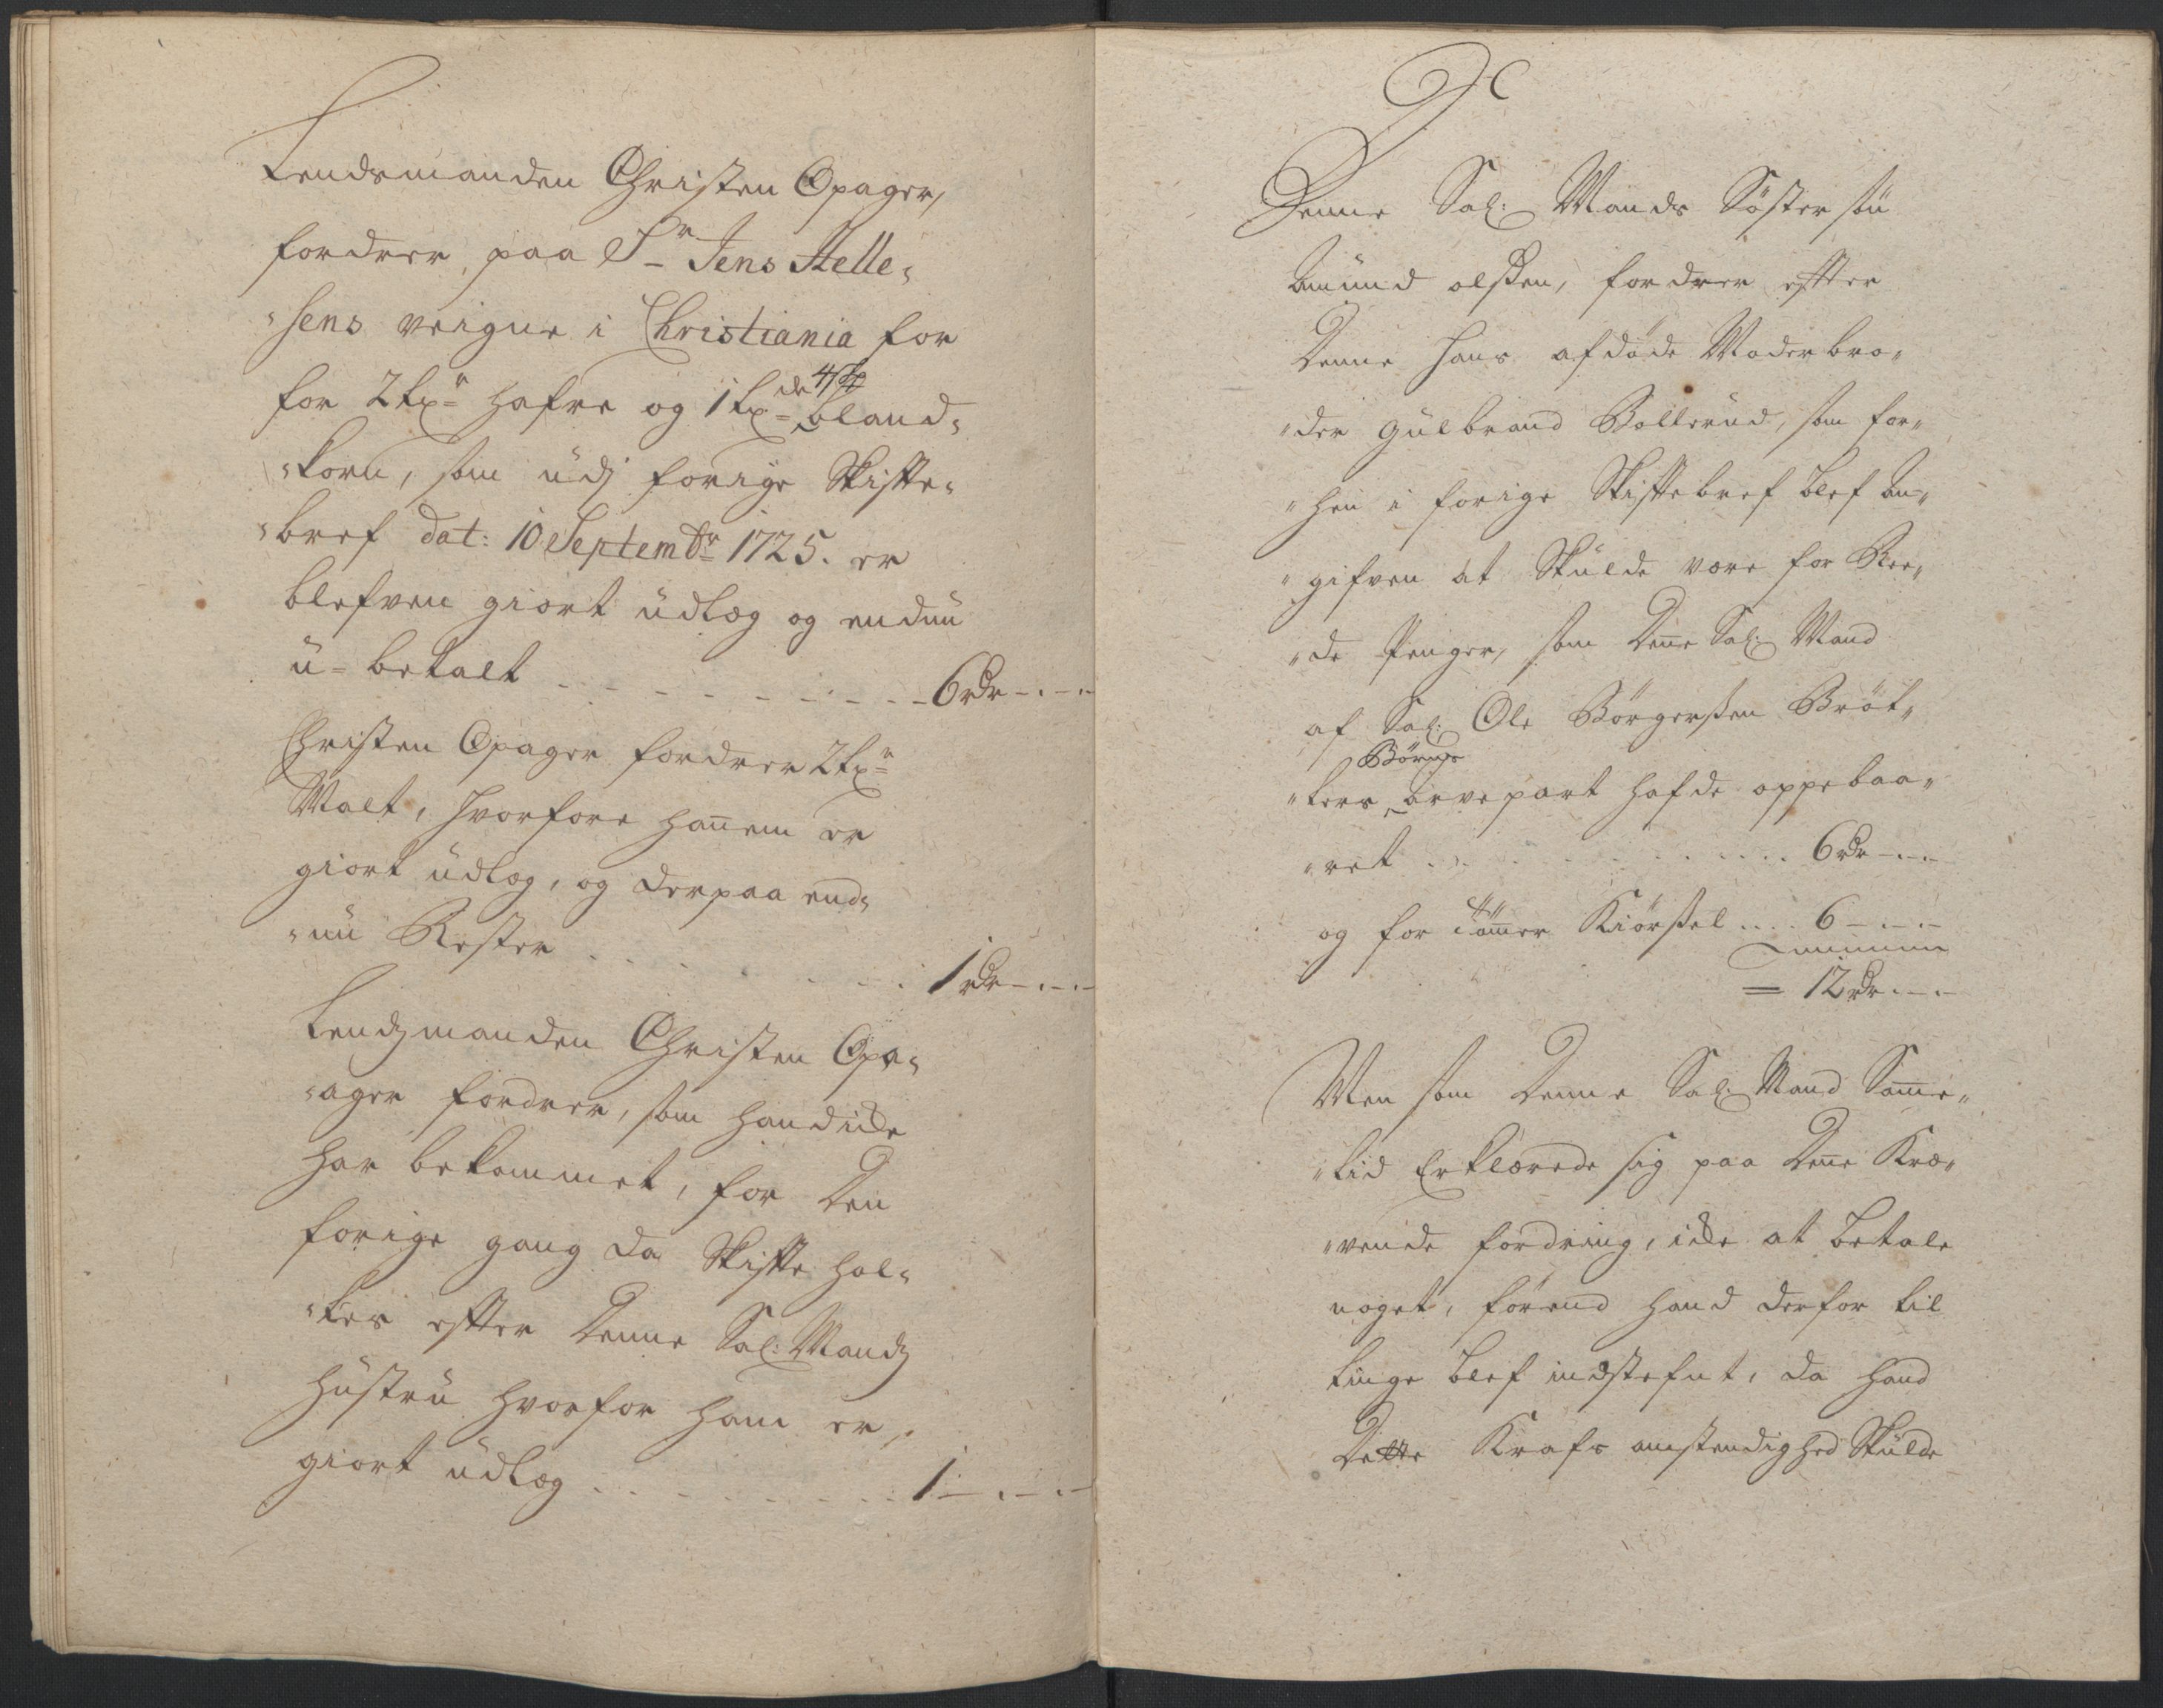 Lendsmanden Christen Opager,
fordrer, paa Sr Jens Stelle„
„sens veigne i Christiania for
for 2 tr hafre og 1 tde 4 bland„
„korn, som udj forige Skifte„
„bref dat: 10 Septembr 1725. er
blefven giort udlæg og endnu
u-betalt - - - - - - - - 6 rdr - . - .
Christen Opager fordrer 2
Malt, hvorfore hannem er
giort udlæg, og derpaa end„
„nu Rester . . . . . . . 1 rdr - . - . -
Lendzmanden Christen Opa„
„ager fordrer, som hand icke
har bekommet, for den
forige gang da Skifte hol„
„tes efter denne Sal: Mandz
hustru hvorfor ham er,
giort udlæg . . . . . . . 1 - . - . -
Denne Sal: Mands Søster søn
Amund olssen, fordrer efter
denne hans afdøde Moder bro„
„der Gulbrand Bollerud, som for„
„hen i forige Skiftebref blef an„
„gifven at Skulde være for Ree„
„de Penger, som denne Sal: Mand
af Sal: Ole Børgersen Brøt„
Børns
„ters arvepart hafde oppebaa„
„ret . . . . . . . . . . 6 rdr - . -
og for tømmer Kiørssel . . . . 6 - . - . -
= 12 rdr . - . -
Men som denne Sal: Mand Samme„
„tid Erklærede sig paa denne Kræ„
„vende fordring, icke at betale
noget, førend hand derfor til
tinge blef indstefnt, da hand
dette Krafs omstendighed Skulde